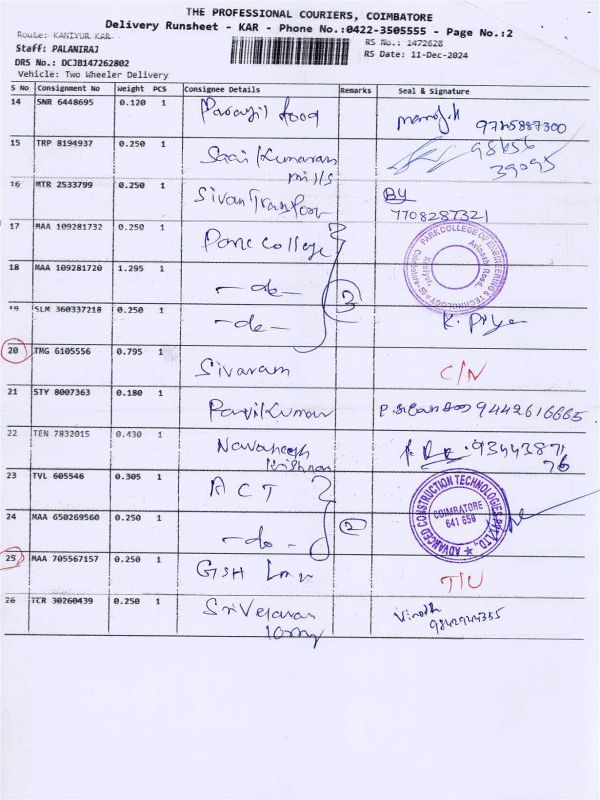 THE PROFESSIONAL COURIERS, COIMBATORE
Delivery Runsheet - KAR - Phone No.:0422-3505555 - Page No.:2
Route: KANIYUR KAR
RS No.: 1472628
Staff: PALANIRAJ
RS Date: 11-Dec-2024
DRS No.: DCJB147262802
Vehicle: Two Wheeler Delivery
S No Consignment No Weight PCS Consignee Details Remarks Seal & Signature
14 SNR 6448695 0.120 1 food 9725887300
15 TRP 8194937 0.250 1 Saai Kumaran mills 98656 39095
16 MTR 2533799 0.250 1 Sivan Transport BY 7708287321
17 MAA 109281732 0.250 1 Park College
PARK COLLEGE OF ENGINEERING & TECHNOLOGY
18 MAA 109281720 1.295 1 -do- 3
19 SLM 360337218 0.250 1 -do- K. Priya
20 TMG 6105556 0.795 1 Sivaram C/N
21 STY 8007363 0.180 1 9442616665
22 TEN 7832015 0.430 1 Navaneeth Krishnan 93443871 76
23 TVL 605546 0.305 1 ACT
ADVANCED CONSTRUCTION TECHNOLOGIES PVT LTD.,
COIMBATORE
641 658
24 MAA 650269560 0.250 1 -do- 2
25 MAA 705567157 0.250 1 T/U
26 TCR 30260439 0.250 1 Vinoth